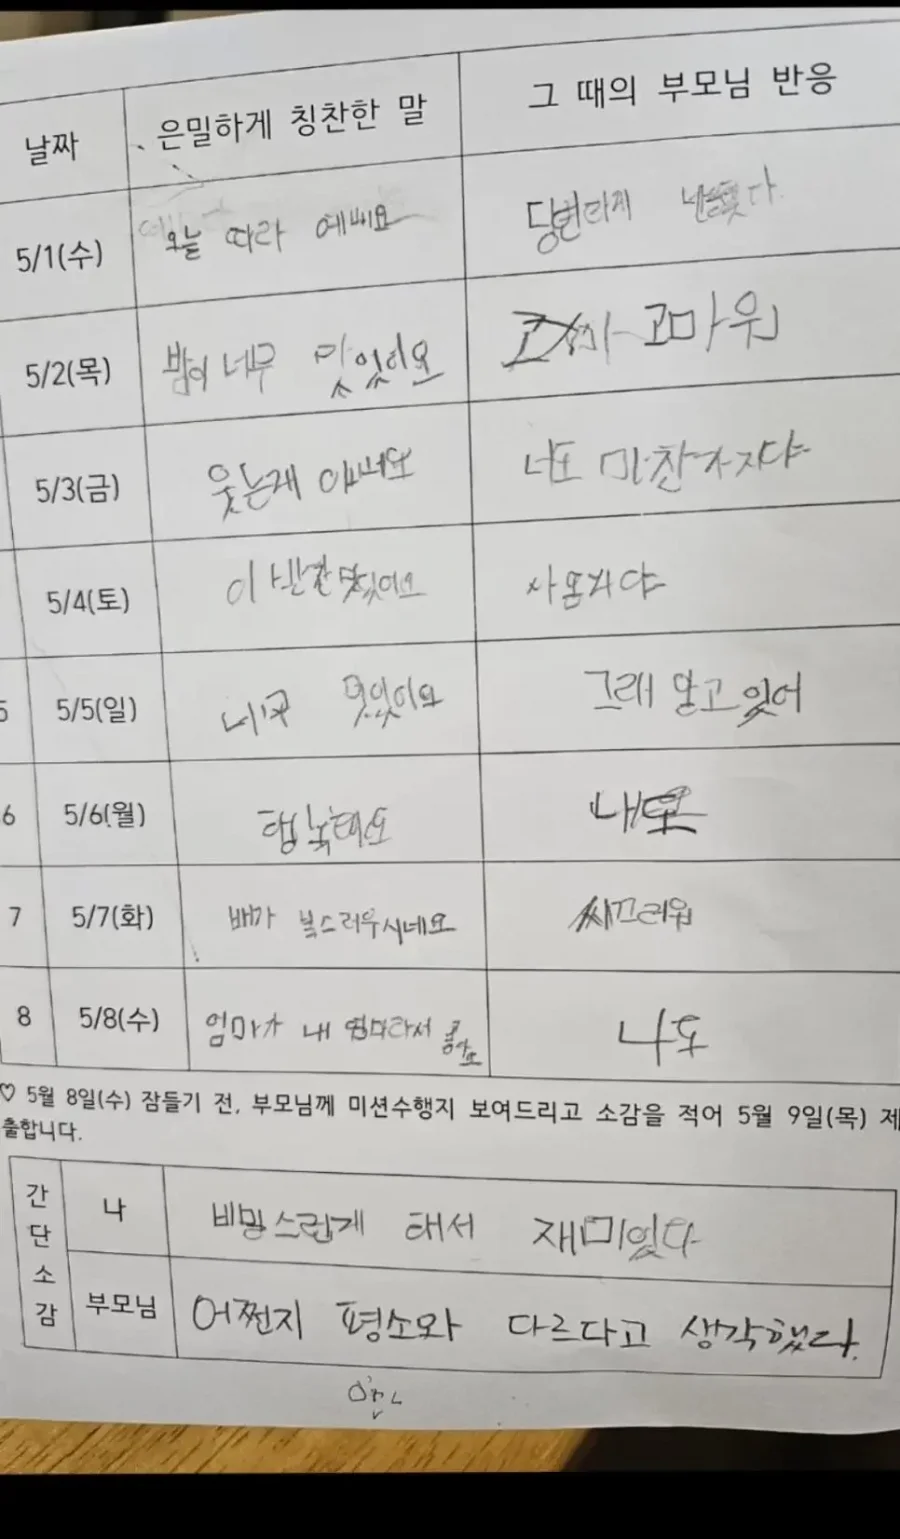 날짜 은밀하게 칭찬한 말 그 때의 부모님 반응
5/1(수) 오늘 따라 예뻐요
5/2(목) 밥이 너무 맛있어요 고마워
5/3(금) 웃는게 너도 마찬가지야
5/4(토) 이 반찬 맛있어요
5 5/5(일) 맛있어요 그래 알고 있어
6 5/6(월) 행복해요
7 5/7(화) 배가 씨끄러워
8 5/8(수) 엄마가 내 엄마라서 좋아요 나도
♡ 5월 8일(수) 잠들기 전, 부모님께 미션수행지 보여드리고 소감을 적어 5월 9일(목) 제
출합니다.
간단소감
나 비밍스럽게 해서 재미있다
부모님 어쩐지 평소와 다르다고 생각했다.